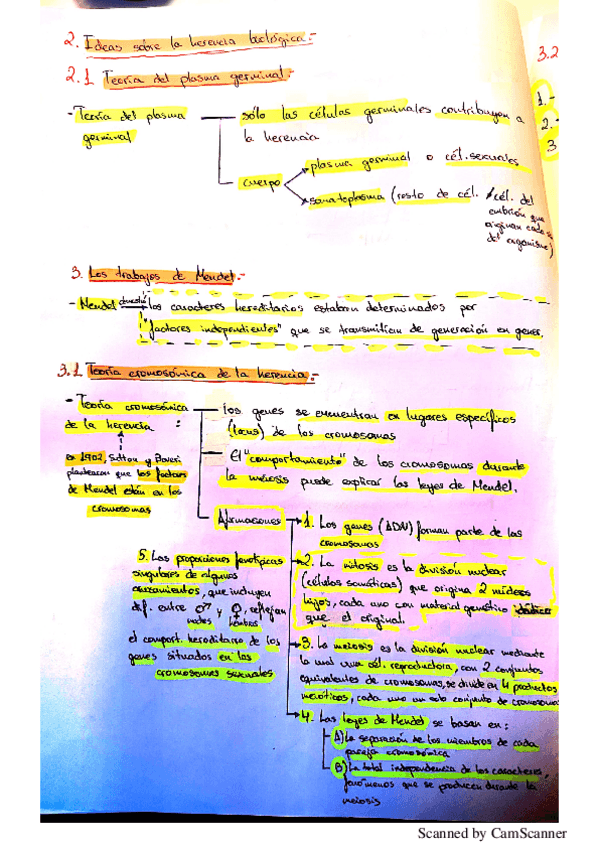 2. Ideas sobre la herencia biológica:-
2.1 Teoría del plasma germinal:-
- Teoría del plasma germinal
sólo las células germinales contribuyen a
la herencia
cuerpo
plasma germinal o cél. sexuales
somatoplasma (resto de cél.
/cél. del
embrión que
originan cada
del organismo)
3.2
1.-
2.-
3
3. Los trabajos de Mendel:-
- Mendel demostró los caracteres hereditarios estaban determinados por
"factores independientes" que se transmitían de generación en gener.
3.1 Teoría cromosómica de la herencia:-
- Teoría cromosómica
de la herencia :
en 1902, Sutton y Boveri
plantearon que los factores
de Mendel están en los
cromosomas
los genes se encuentran en lugares específicos
(locus) de los cromosomas
El "comportamiento" de los cromosomas durante
la meiosis puede explicar las leyes de Mendel.
Afirmaciones
1. Los genes (ADN) forman parte de los
cromosomas
2. La mitosis es la división nuclear
(células somáticas) que origina 2 núcleos
hijos, cada uno con material genético idéntico
que el original.
3. La meiosis es la división nuclear mediante
la cual una cél. reproductora, con 2 conjuntos
equivalentes de cromosomas, se divide en 4 productos
meióticos, cada uno un solo conjunto de cromosomas
4. Las leyes de Mendel se basan en:
A) La separación de los miembros de cada
pareja cromosómica
B) La total independencia de los caracteres,
fenómenos que se producen durante la
meiosis
5. Las proporciones fenotípicas
singulares de algunos
cruzamientos, que incluyen
dif. entre ♂ y ♀, reflejan
hembras
el comport. hereditario de los
genes situados en los
cromosomas sexuales
Scanned by CamScanner